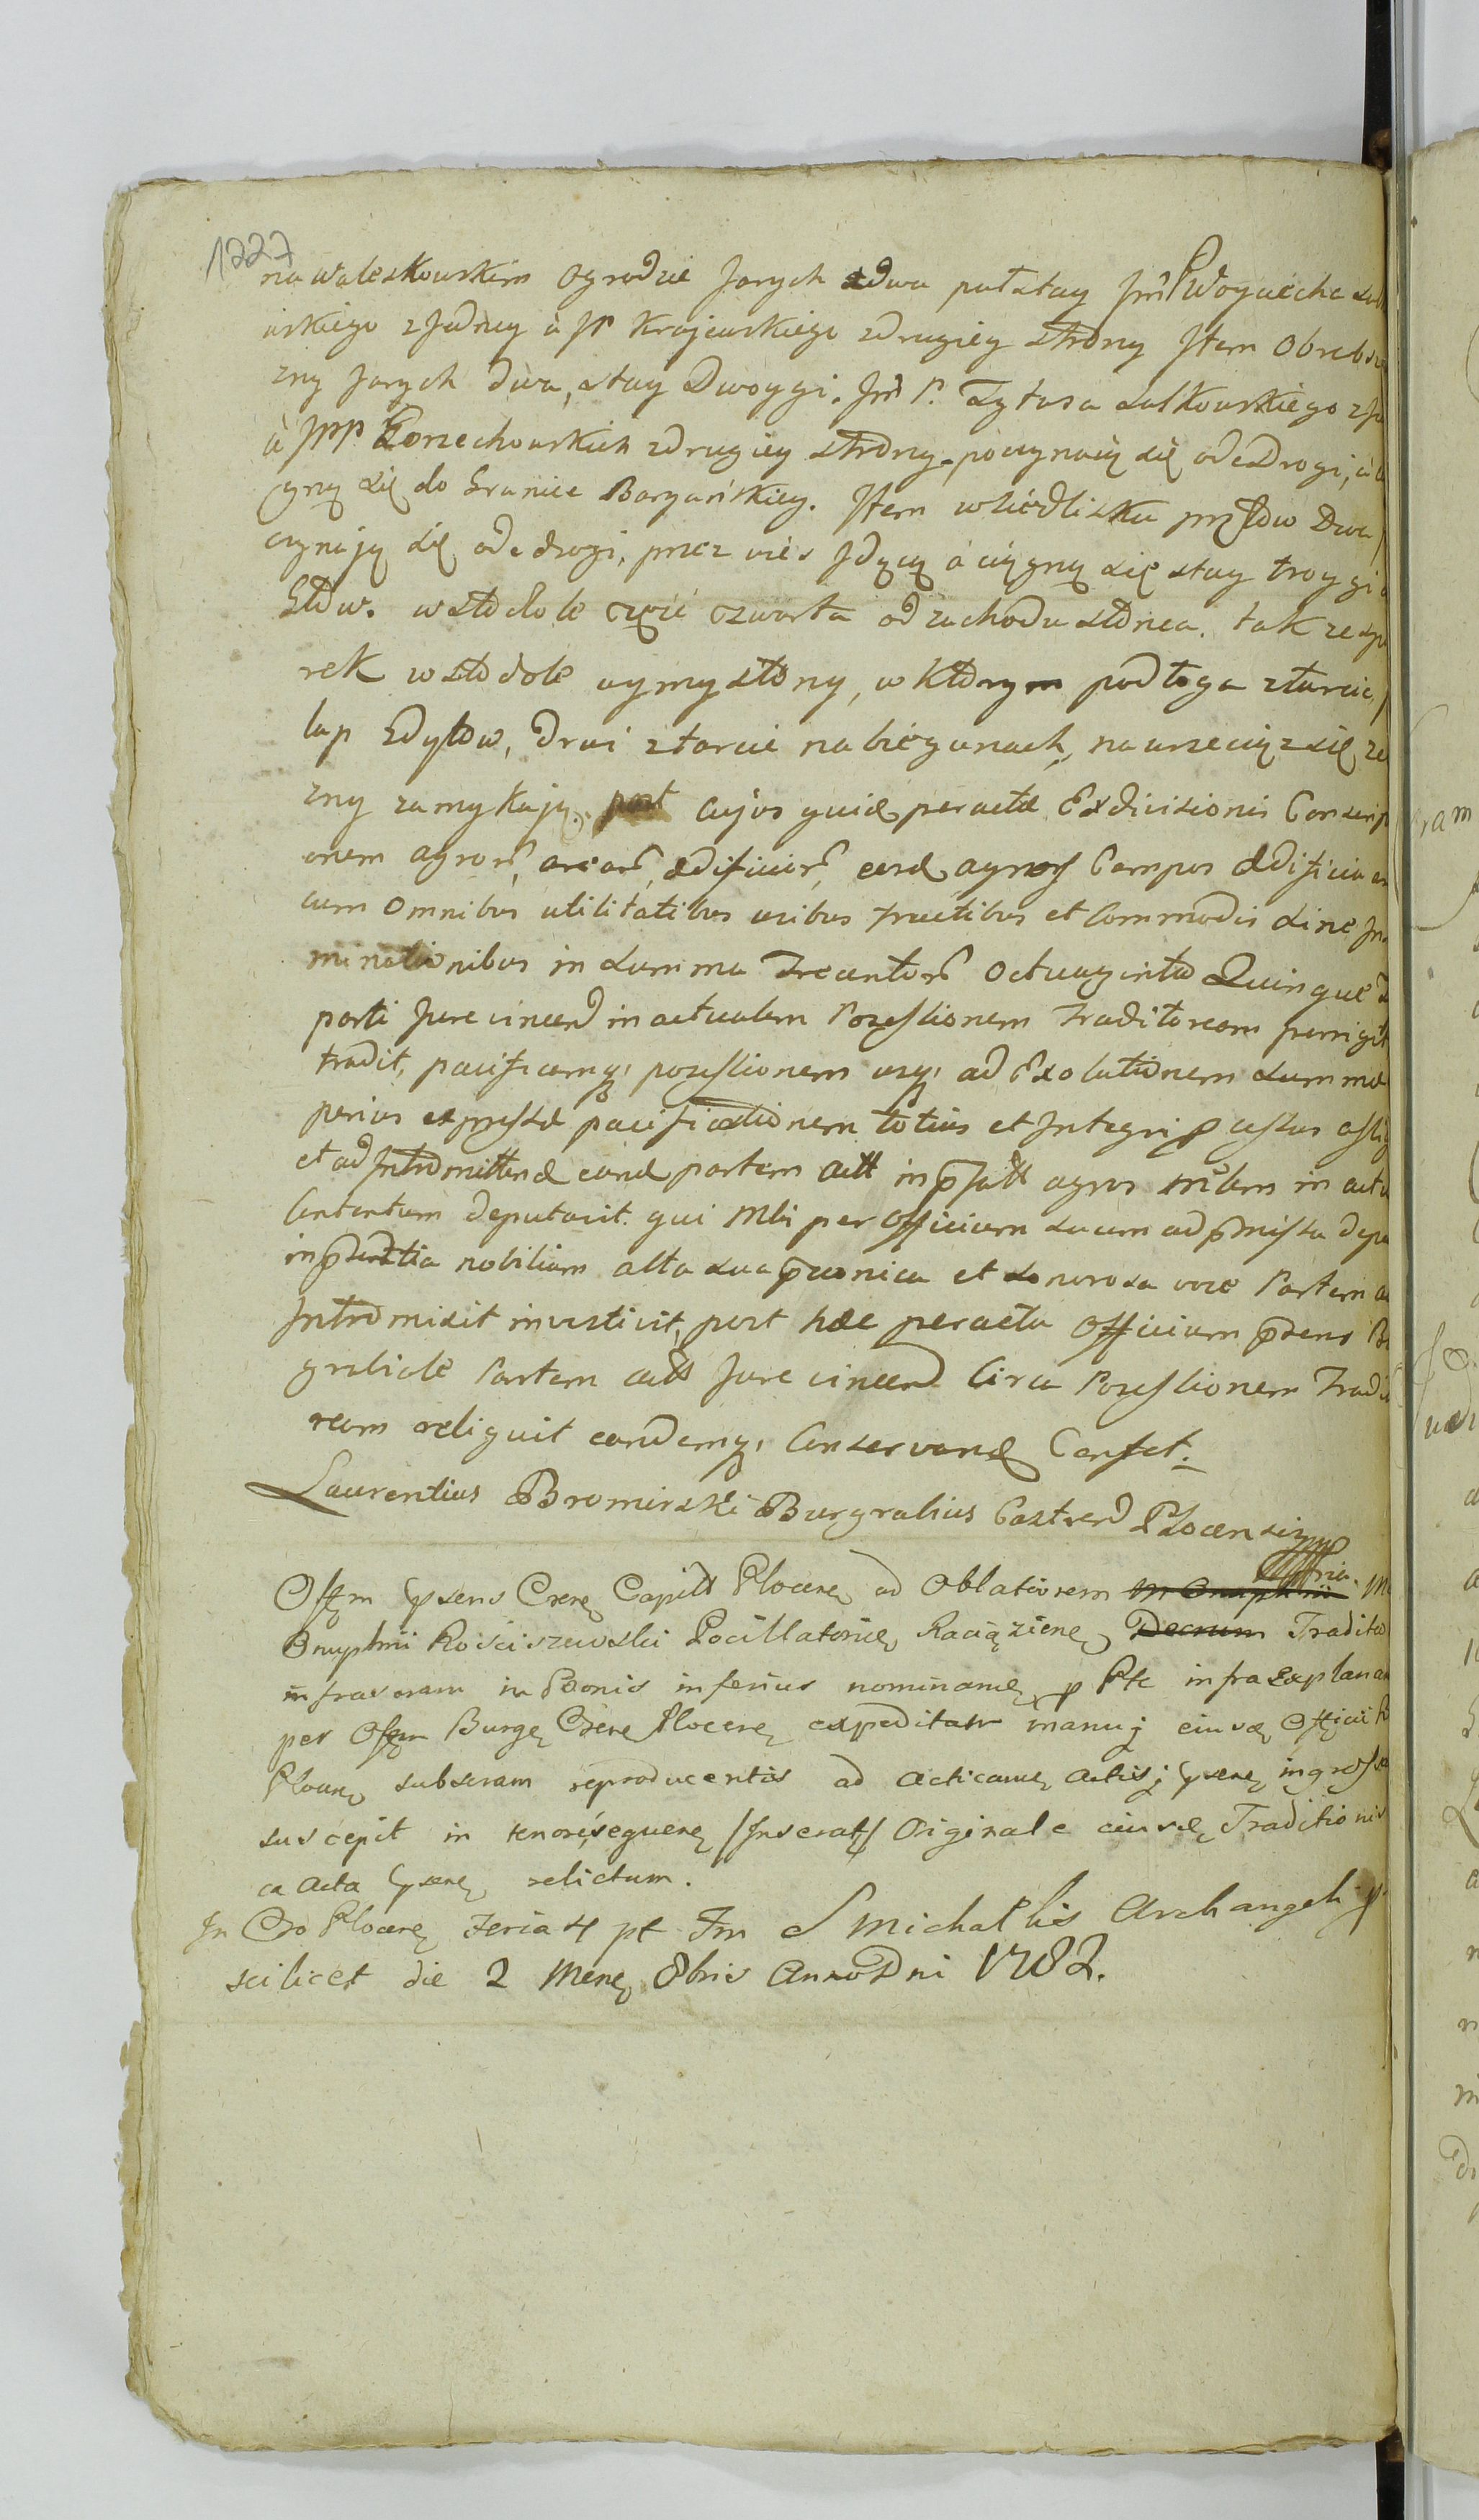 1227
na Waleskowskim Ogrodzie Jarych zdwa pułstay Jm̃ P Woyciecha Sul
urskiego z Jedney à JP Krajewskiego zdrugiey strony Item Obrebsz
zny Jarych dwa, stay Dwoygi. Jm̃ P. Tytusa Sulkowskiego z Je
à JPP. Gorzechowskich zdrugiey strony poczynaią się odedrogi, à c
gną się do Granice Borzańskiey. Item w siedlisku prętow Dwa
czynaią się odedrogi, przez wieś Idącey à ciągną się stay troygi à
Głów. w stodole część czwarta od zachodu słońca. tak ze sp
rek w stodole wymysłony, w którym podłoga z tarcic
lup Zdyłów, drzwi z tarcic na biegunach, na wrzeciądz się ze
zny zamykają. post cujus quid peractæ Exdivisionis Conscrip
onem agror, arear, ædificior, eosd agros Campos ædificia
cum Omnibus utilitatibus usibus fructibus et Commodis Sine
minationibus in Summa Trecentor Octuaginta Quinque
parti Jure vincen in actualem Possessionem Traditoream porrigit
tradit, pacificamq possessionem usq ad Exolutionem Summæ
perius expressæ pacificationem totius et Integri p cessus assig
et ad Intromittend eand partem actt in p fatt agros mslem in actu
Contentum deputavit. qui Mlis per Officium Suum ad p missa depu
in p sentia nobilium alta sua p conica et Sonorosa voce Partem
Intromisit investivit, post hæc peracta Officium p sens B
grabiale Partem actt Jure vincen Circa Possessionem Tradi
ream reliquit eandemq, Conservand Censet.
Laurentius Bromirski Burgrabius Castren Plocensis
Offm p sens Cren Capitt Plocen ad Oblationem M Onuphrii M
Onuphrii Kosciszewski Pocillatoris Raciązien Decrum Tradito
infraseram in Bonis inferius nominan p Pte infra Explana
per Offm Burg Cren Plocen expeditam manuj eiusd Officii
Plocen subseram reproducentis ad acticand actisj p sen ingross
suscepit in tenore sequen /Inserat/ Originale eiusd Traditionis
ca Acta p sen relictum.
In Cro Plocen Feria 4 pt Fm S Michaelis Archangeli p
scilicet die 2 Men 8bris Anno Dni 1782.